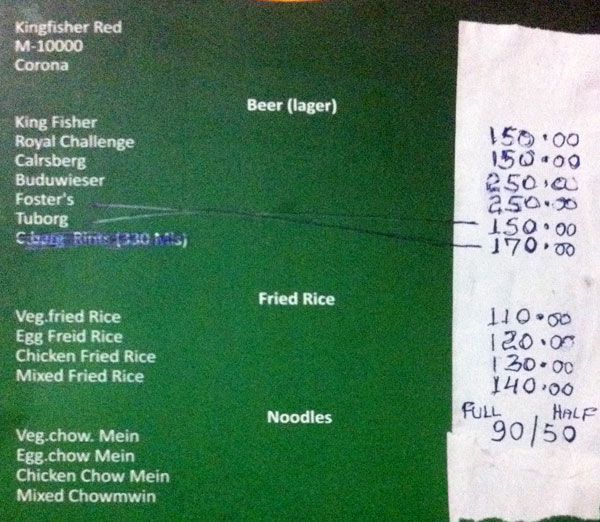 Kingfisher Red
M-10000
Corona
Beer (lager)
King Fisher 150.00
Royal Challenge 150.00
Calrsberg 250.00
Buduwieser 250.00
Foster's 150.00
Tuborg 170.00
(330 Mls)
Fried Rice
Veg.fried Rice 110.00
Egg Freid Rice 120.00
Chicken Fried Rice 130.00
Mixed Fried Rice 140.00
Noodles FULL HALF
Veg.chow. Mein 90/50
Egg.chow Mein
Chicken Chow Mein
Mixed Chowmwin